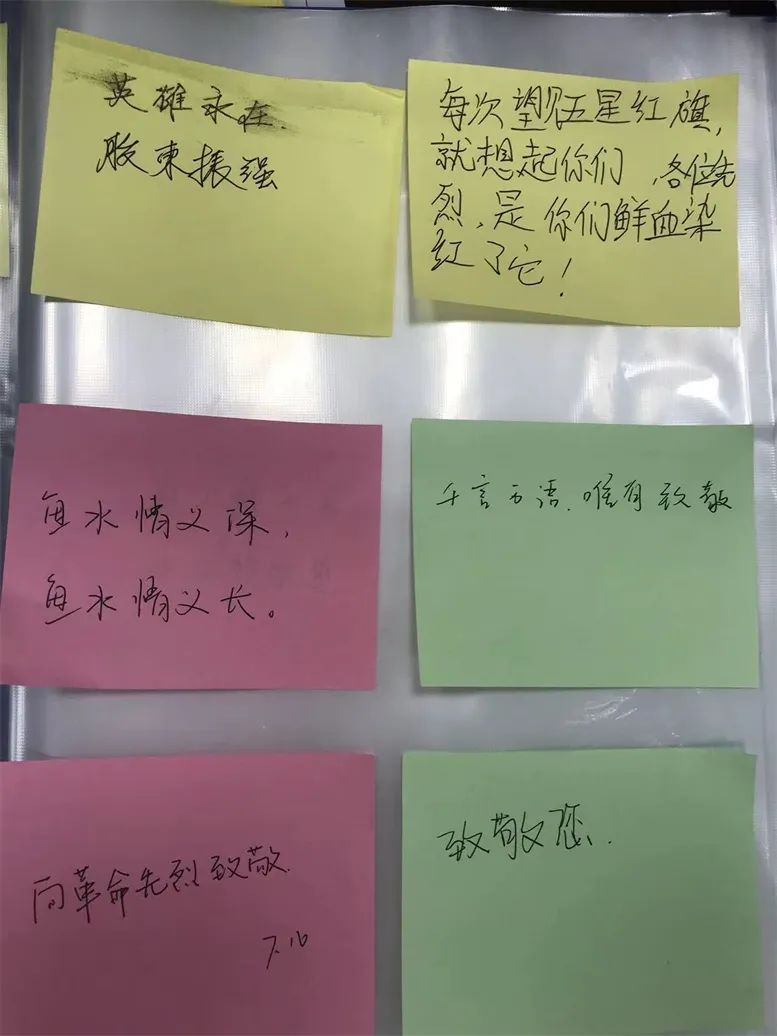 英雄永在.
股东振强
每次望见五星红旗,
就想起你们,各位先
烈,是你们鲜血染
红了它!
鱼水情义深,
鱼水情义长。
千言万语.唯有致敬
向革命先烈致敬.
7.16
致敬您.